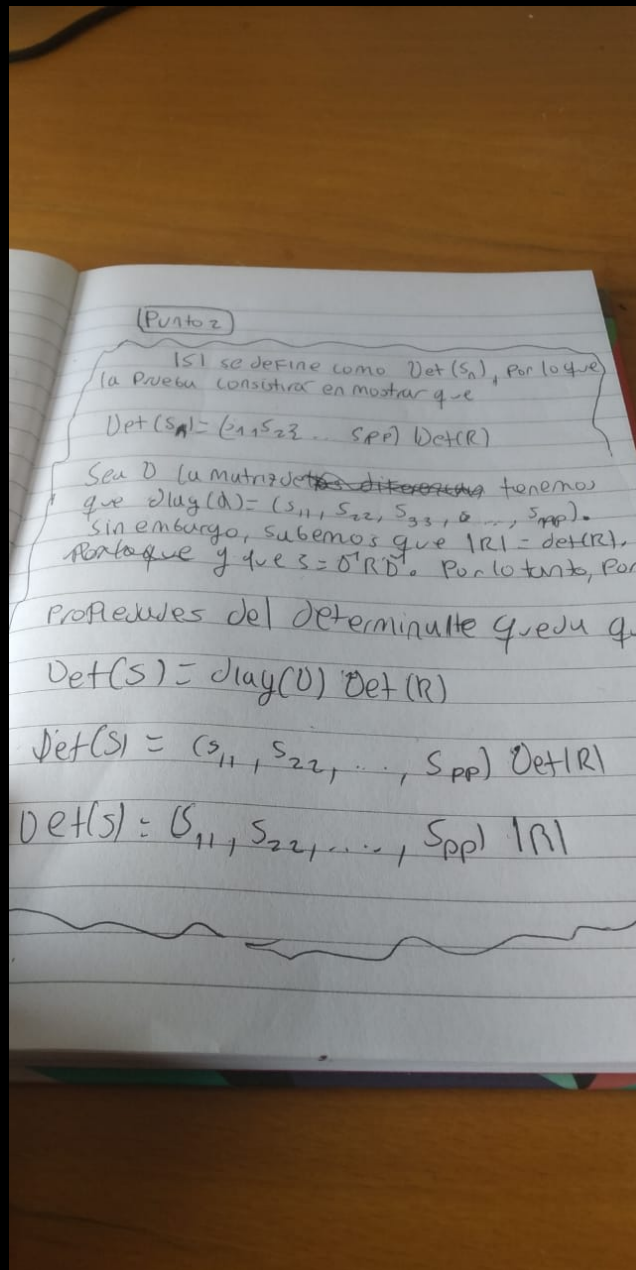 Punto 2
|S| se define como Det(Sn), Por lo que
la Prueba consistira en mostrar que
Det(Sn) = (s11 s22 ... spp) Det(R)
Sea D la matriz de tenemos
que diag(d) = (s11, s22, s33, ..., spp).
sin embargo, sabemos que |R| = det(R).
y que S = D^1 R D^1. Por lo tanto, Por
Propiedades del determinante queda qu
Det(S) = diag(D) Det(R)
Det(S) = (s11, s22, ..., spp) Det|R|
Det(S) = (s11, s22, ...., spp) |R|